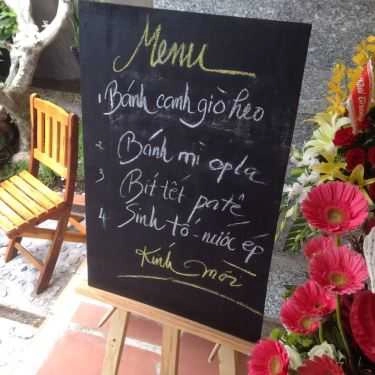 Menu
1 Bánh canh giò heo
2 Bánh mì opla
3 Bít tết patê
4 Sinh tố - nước ép
Kính mời